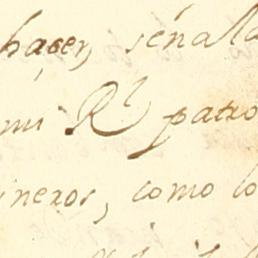 hacer, séñala
mi Rl patro
ineros, como lo